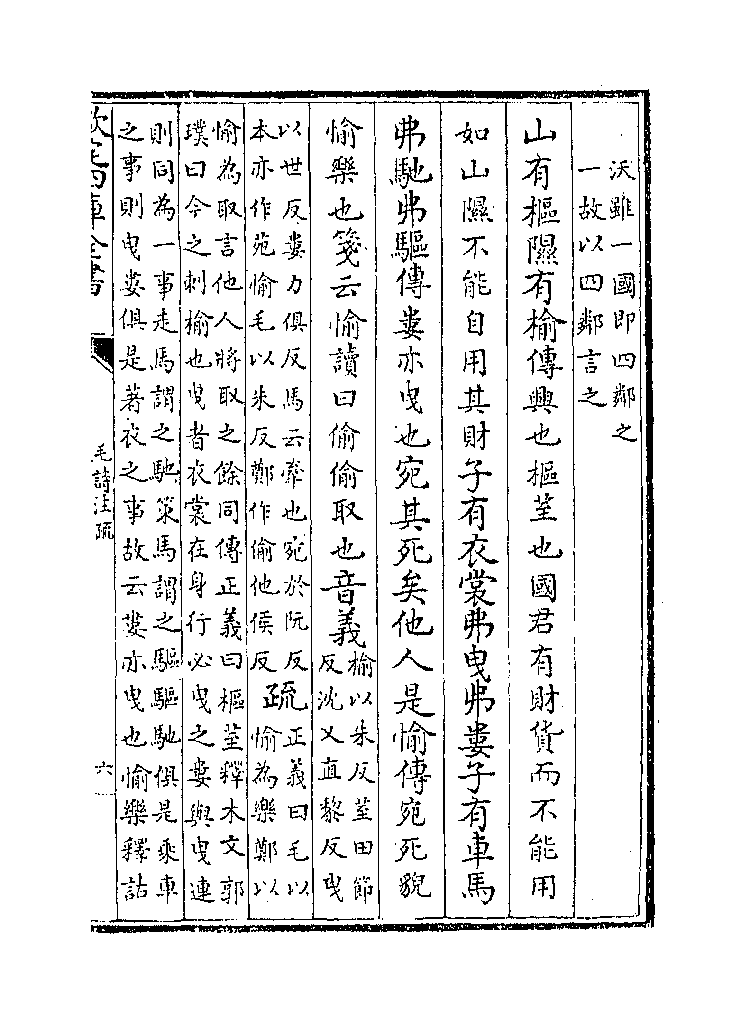 沃雖一國即四鄰之
一故以四鄰言之
山有樞隰有榆傳興也樞荎也國君有財貨而不能用
如山隰不能自用其財子有衣裳弗曳弗婁子有車馬
弗馳弗驅傳婁亦曳也宛其死矣他人是愉傳宛死貌
愉樂也箋云愉讀曰偷偷取也音義
榆以朱反荎田節
反沈又直黎反曳
以世反婁力俱反馬云牽也宛於阮反
本亦作苑愉毛以朱反鄭作偷他侯反
疏
正義曰毛以
愉為樂鄭以
愉為取言他人將取之餘同傳正義曰樞荎釋木文郭
璞曰今之刺榆也曳者衣裳在身行必曳之婁與曳連
則同為一事走馬謂之馳策馬謂之驅驅馳俱是乘車
之事則曳婁俱是著衣之事故云婁亦曳也愉樂釋詁
欽定四庫全書
毛詩注疏
六